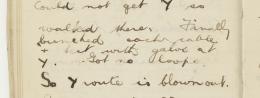 Could not get Y so
walked there. Finally
bunched each cable
+ bet with galvo at
Y. Got no loops.
So Y route is blown out.